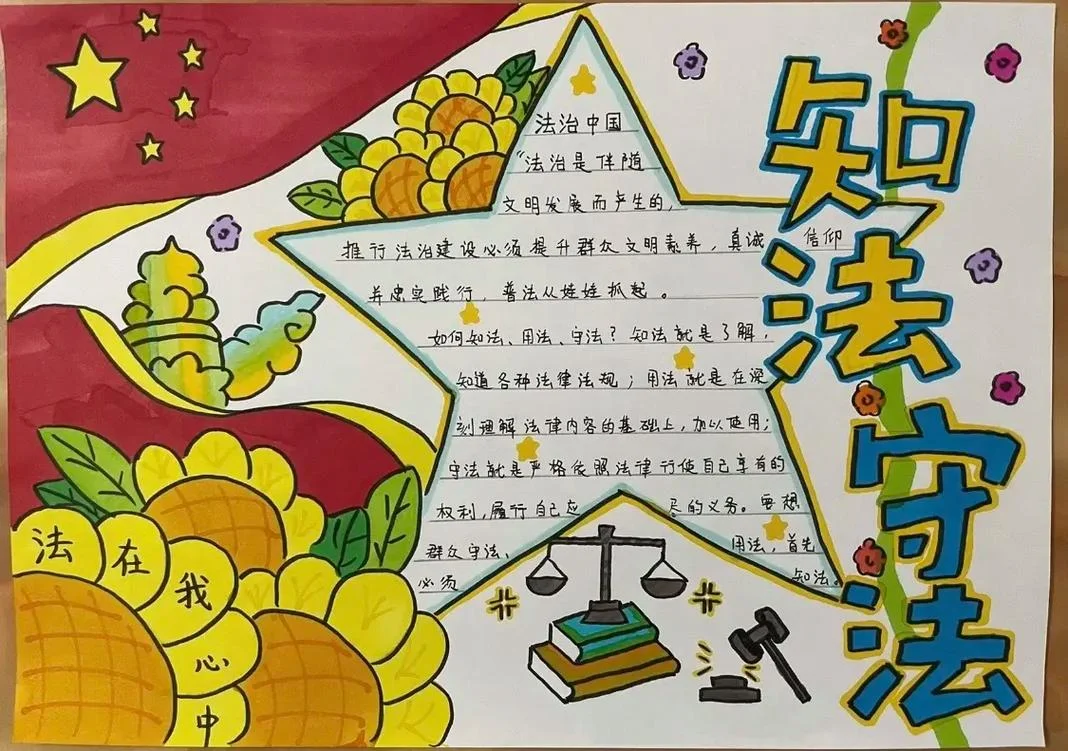 知法
守法
法治中国
"法治是伴随
文明发展而产生的,
推行法治建设必须提升群众文明素养,真诚信仰
并忠实践行,普法从娃娃抓起。
如何知法、用法、守法?知法就是了解,
知道各种法律法规;用法就是在深
刻理解法律内容的基础上,加以使用;
守法就是严格依照法律行使自己享有的
权利,履行自己应尽的义务。要想
群众守法、用法,首先
必须知法。
法在我心中